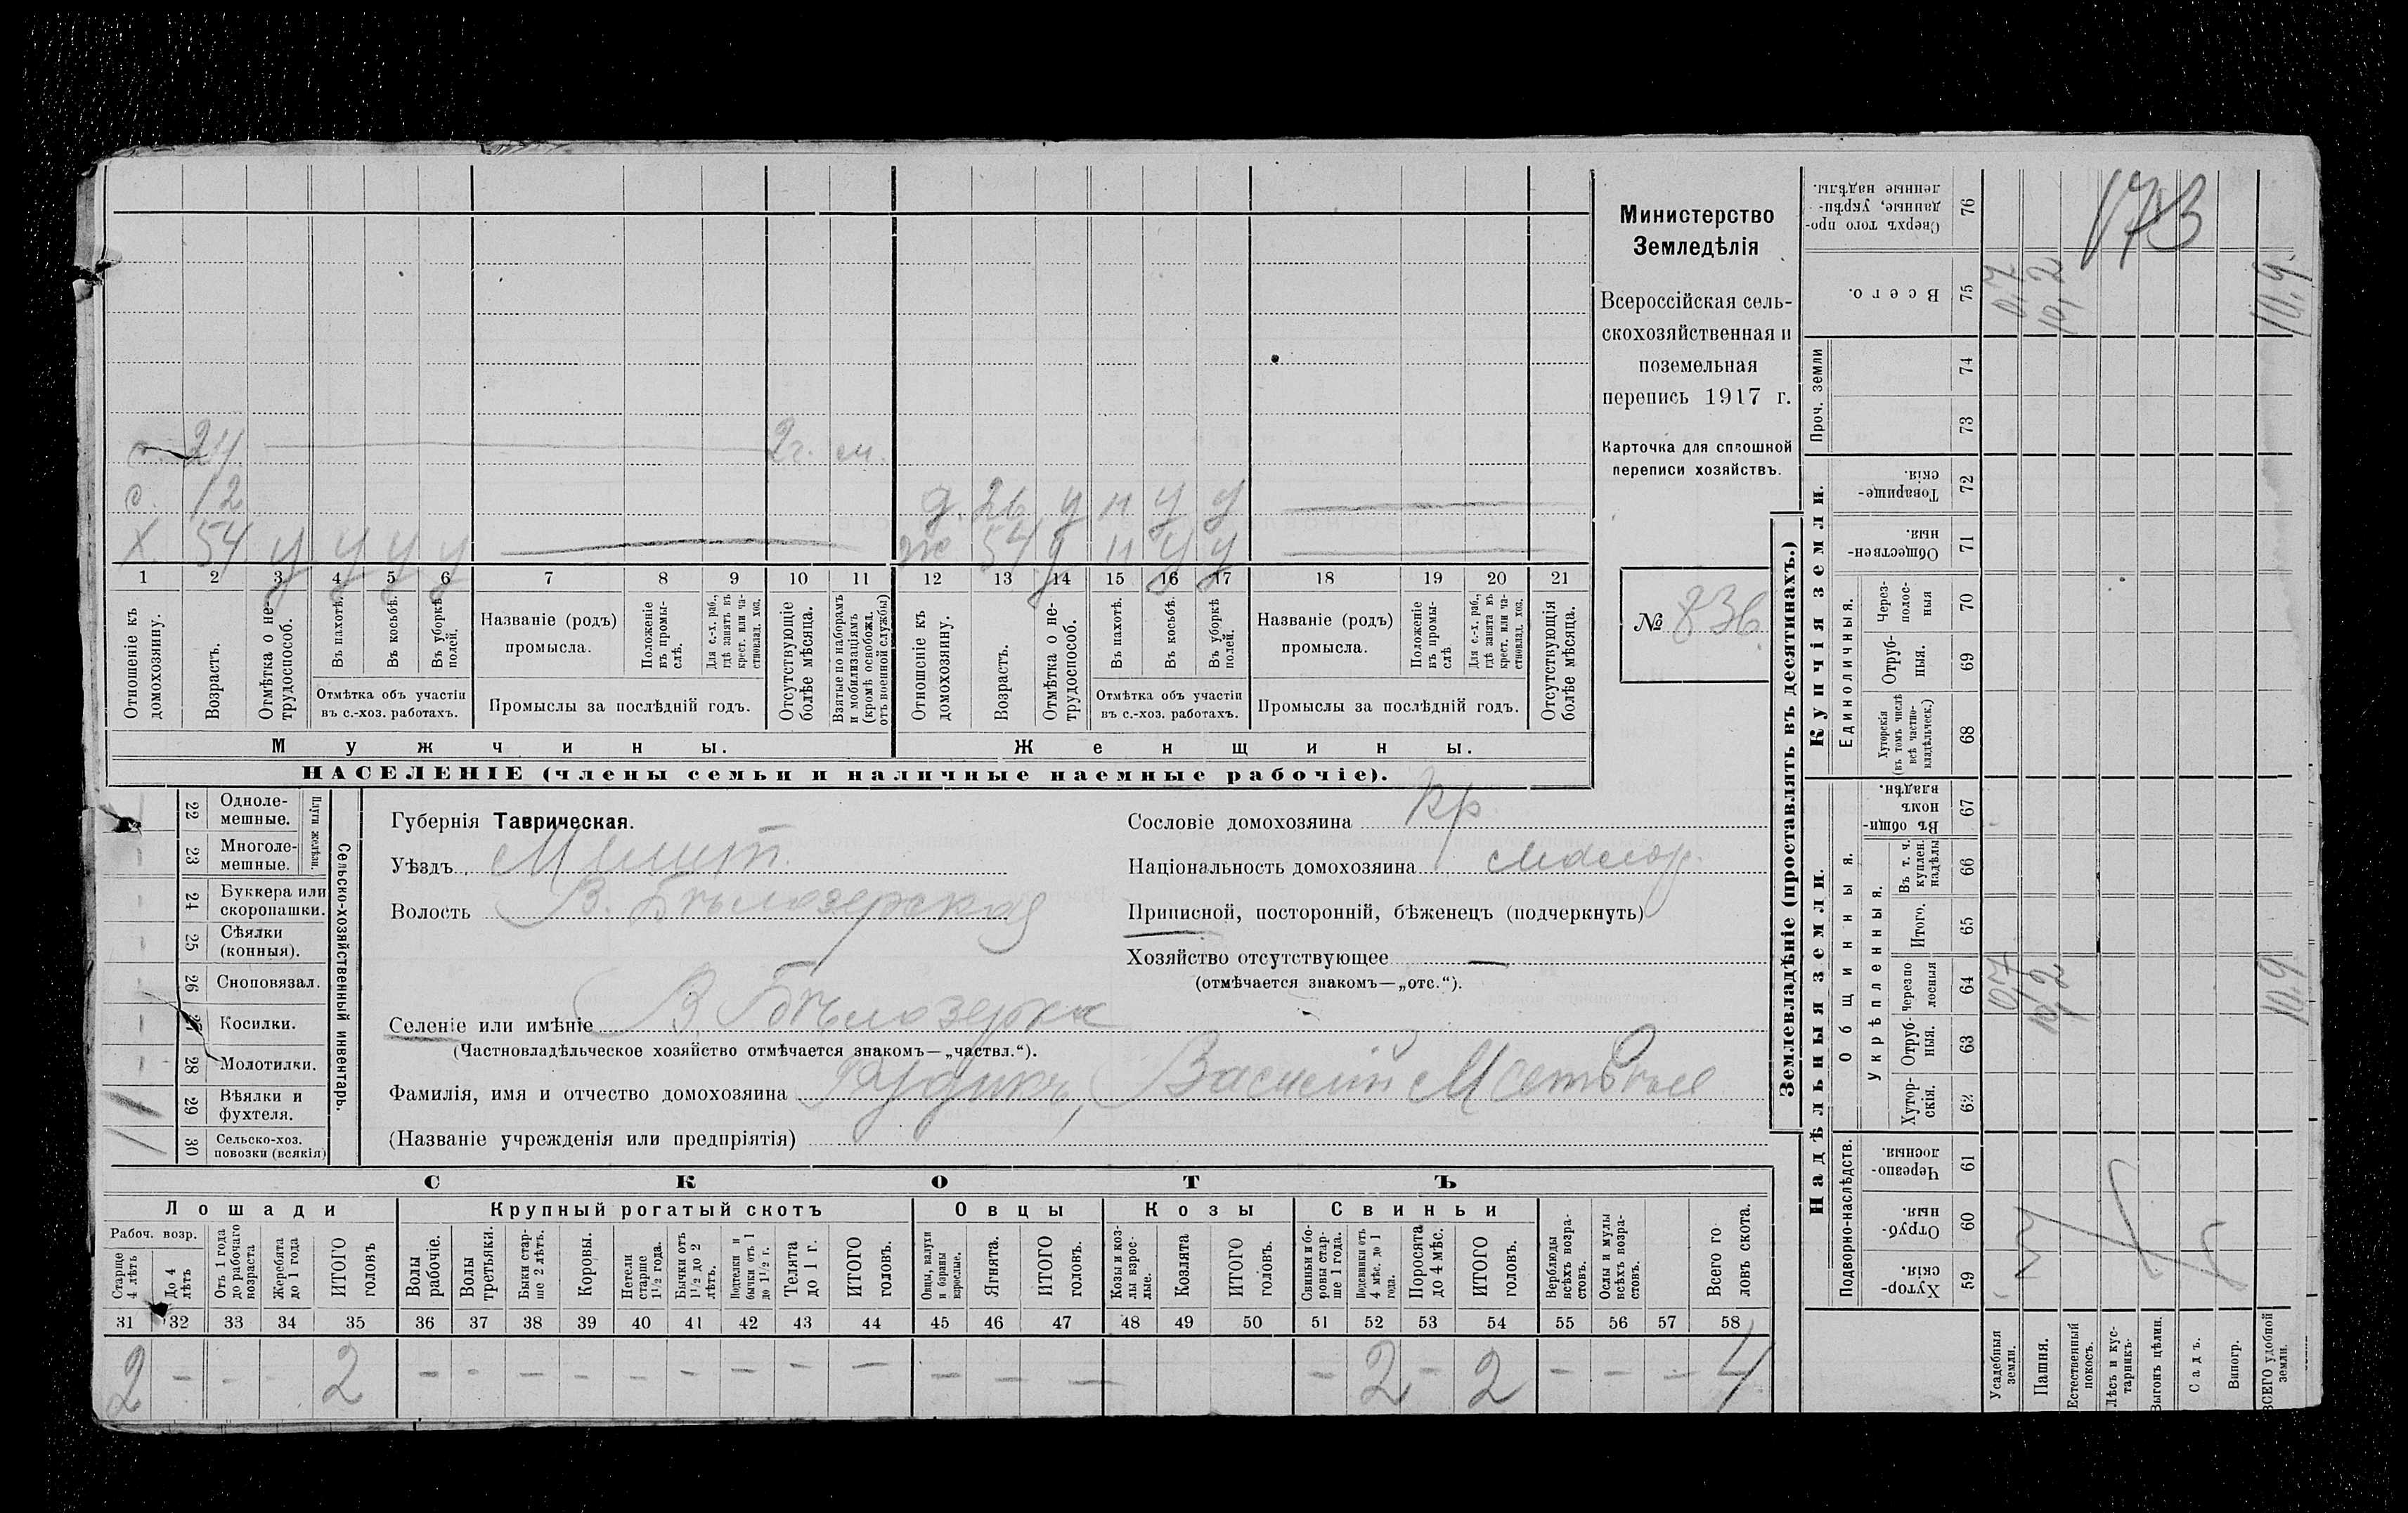 с. 24 2г. м.
с. 12 д. 26 у н у у
х. 54 у у у у ж 54 у н у у
1 2 3 4 5 6 7 8 9 10 11 12 13 14 15 16 17 18 19 20 21
Отношеніе къ домохозяину.
Возрастъ.
Отмѣтка о не-
трудоспособ.
Въ пахотѣ.
Въ косьбѣ.
Въ уборкѣ
полей.
Отмѣтка объ участіи
въ с.-хоз. работахъ.
Названіе (родъ)
промысла.
Положеніе
къ промы-
слѣ.
Для с.-х. раб.,
гдѣ занятъ въ
крест. или ча-
стновлад. хоз.
Промыслы за послѣдній годъ.
Отсутствующіе
болѣе мѣсяца.
Взятые по наборамъ
и мобилизаціямъ
(кромѣ освобожд.
отъ военной службы)
Отношеніе къ
домохозяину.
Возрастъ.
Отмѣтка о не-
трудоспособ.
Въ пахотѣ.
Въ косьбѣ.
Въ уборкѣ
полей.
Отмѣтка объ участіи
въ с.-хоз. работахъ.
Названіе (родъ)
промысла.
Положеніе
къ промы-
слѣ
Для с.-х. раб.,
гдѣ занята въ
крест. или ча-
стновлад. хоз.
Промыслы за послѣдній годъ.
Отсутствующія
болѣе мѣсяца.
Мужчины.
Женщины.
НАСЕЛЕНІЕ (члены семьи и наличные наемные рабочіе).
Министерство
Земледѣлія
Всероссійская сель-
скохозяйственная и
поземельная
перепись 1917 г.
Карточка для сплошной
переписи хозяйствъ.
№ 836
22 Одноле-
мешные.
23 Многоле-
мешные.
Плуги желѣзн.
24 Буккера или
скоропашки.
25 Сѣялки
(конныя).
26 Сноповязал.
27 Косилки.
28 Молотилки.
29 Вѣялки и
фухтеля.
1
30 Сельско-хоз.
повозки (всякія)
1
Сельско-хозяйственный инвентарь.
Губернія Таврическая.
Уѣздъ Мелит.
Волость В. Бѣлозерская
Селеніе или имѣніе В. Бѣлозерка
(Частновладѣльческое хозяйство отмѣчается знакомъ—„частвл.“).
Фамилія, имя и отчество домохозяина Рудикъ, Василій Матвѣев
(Названіе учрежденія или предпріятія)
Сословіе домохозяина кр.
Національность домохозяина малор.
Приписной, посторонній, бѣженецъ (подчеркнуть)
Хозяйство отсутствующее —
(отмѣчается знакомъ—„отс.“).
СКОТЪ
Лошади Крупный рогатый скотъ Овцы Козы Свиньи
Рабоч. возр.
Старше
4 лѣтъ
До 4
лѣтъ
Отъ 1 года
до рабочаго
возраста
Жеребята
до 1 года
ИТОГО
головъ
Волы
рабочіе.
Волы
третьяки.
Быки стар-
ше 2 лѣтъ.
Коровы.
Нетели
старше
1½ года.
Бычки отъ
1½ до 2
лѣтъ.
Подтелки и
бычки отъ 1
до 1½ г.
Телята
до 1 г.
ИТОГО
головъ.
Овцы, валухи
и бараны
взрослые.
Ягнята.
ИТОГО
головъ.
Козы и коз-
лы взрос-
лые.
Козлята
ИТОГО
головъ.
Свиньи и бо-
ровы стар-
ше 1 года.
Подсвинки отъ
4 мѣс. до 1
года.
Поросята
до 4 мѣс.
ИТОГО
головъ.
Верблюды
всѣхъ возра-
стовъ.
Ослы и мулы
всѣхъ возра-
стовъ.
Всего го
ловъ скота.
31 32 33 34 35 36 37 38 39 40 41 42 43 44 45 46 47 48 49 50 51 52 53 54 55 56 57 58
2 - - - 2 - - - - - - - - - - - - - 2 - 2 - - - 4
Землевладѣніе (проставлять въ десятинахъ.)
Надѣльныя земли. Купчія земли. Проч. земли
Подворно-наслѣдств.
Общинныя.
Укрѣпленныя.
Единоличныя.
Сверхъ того про-
данные, укрѣп-
ленные надѣлы.
76
173
Всего.
75
0,7
10,2
10,9
74
73
Товарище-
скія.
72
Обществен-
ныя.
71
Через-
полос-
ныя
70
Отруб-
ныя.
69
Хуторскія
(въ томъ числѣ
всѣ частно-
владѣльческ.)
68
Въ общин-
номъ
владѣн.
67
Въ т. ч.
куплен.
надѣлы
66
Итого.
65
Черезпо
лосныя
64
0,7
10,2
10,9
Отруб-
ныя.
63
Хутор-
скія.
62
Черезпо-
лосныя.
61
Отруб-
ныя.
60
Хутор-
скія.
59
Усадебныя
земли.
Пашня.
Естественный
покосъ.
Лѣсъ и кус-
тарникъ.
Выгонъ цѣлин.
Садъ.
Виногр.
ВСЕГО удобной
земли.